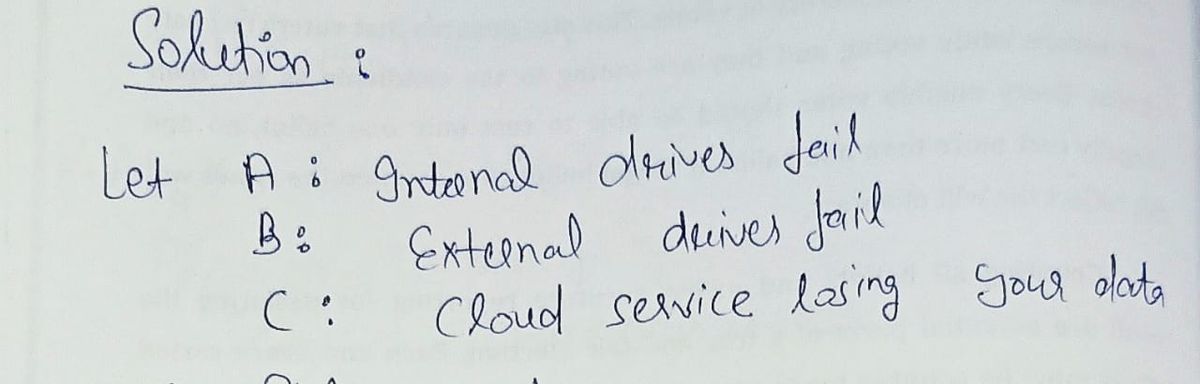 Solution :
Let A : Internal drives fail
B : External drives fail
C : Cloud service losing your data